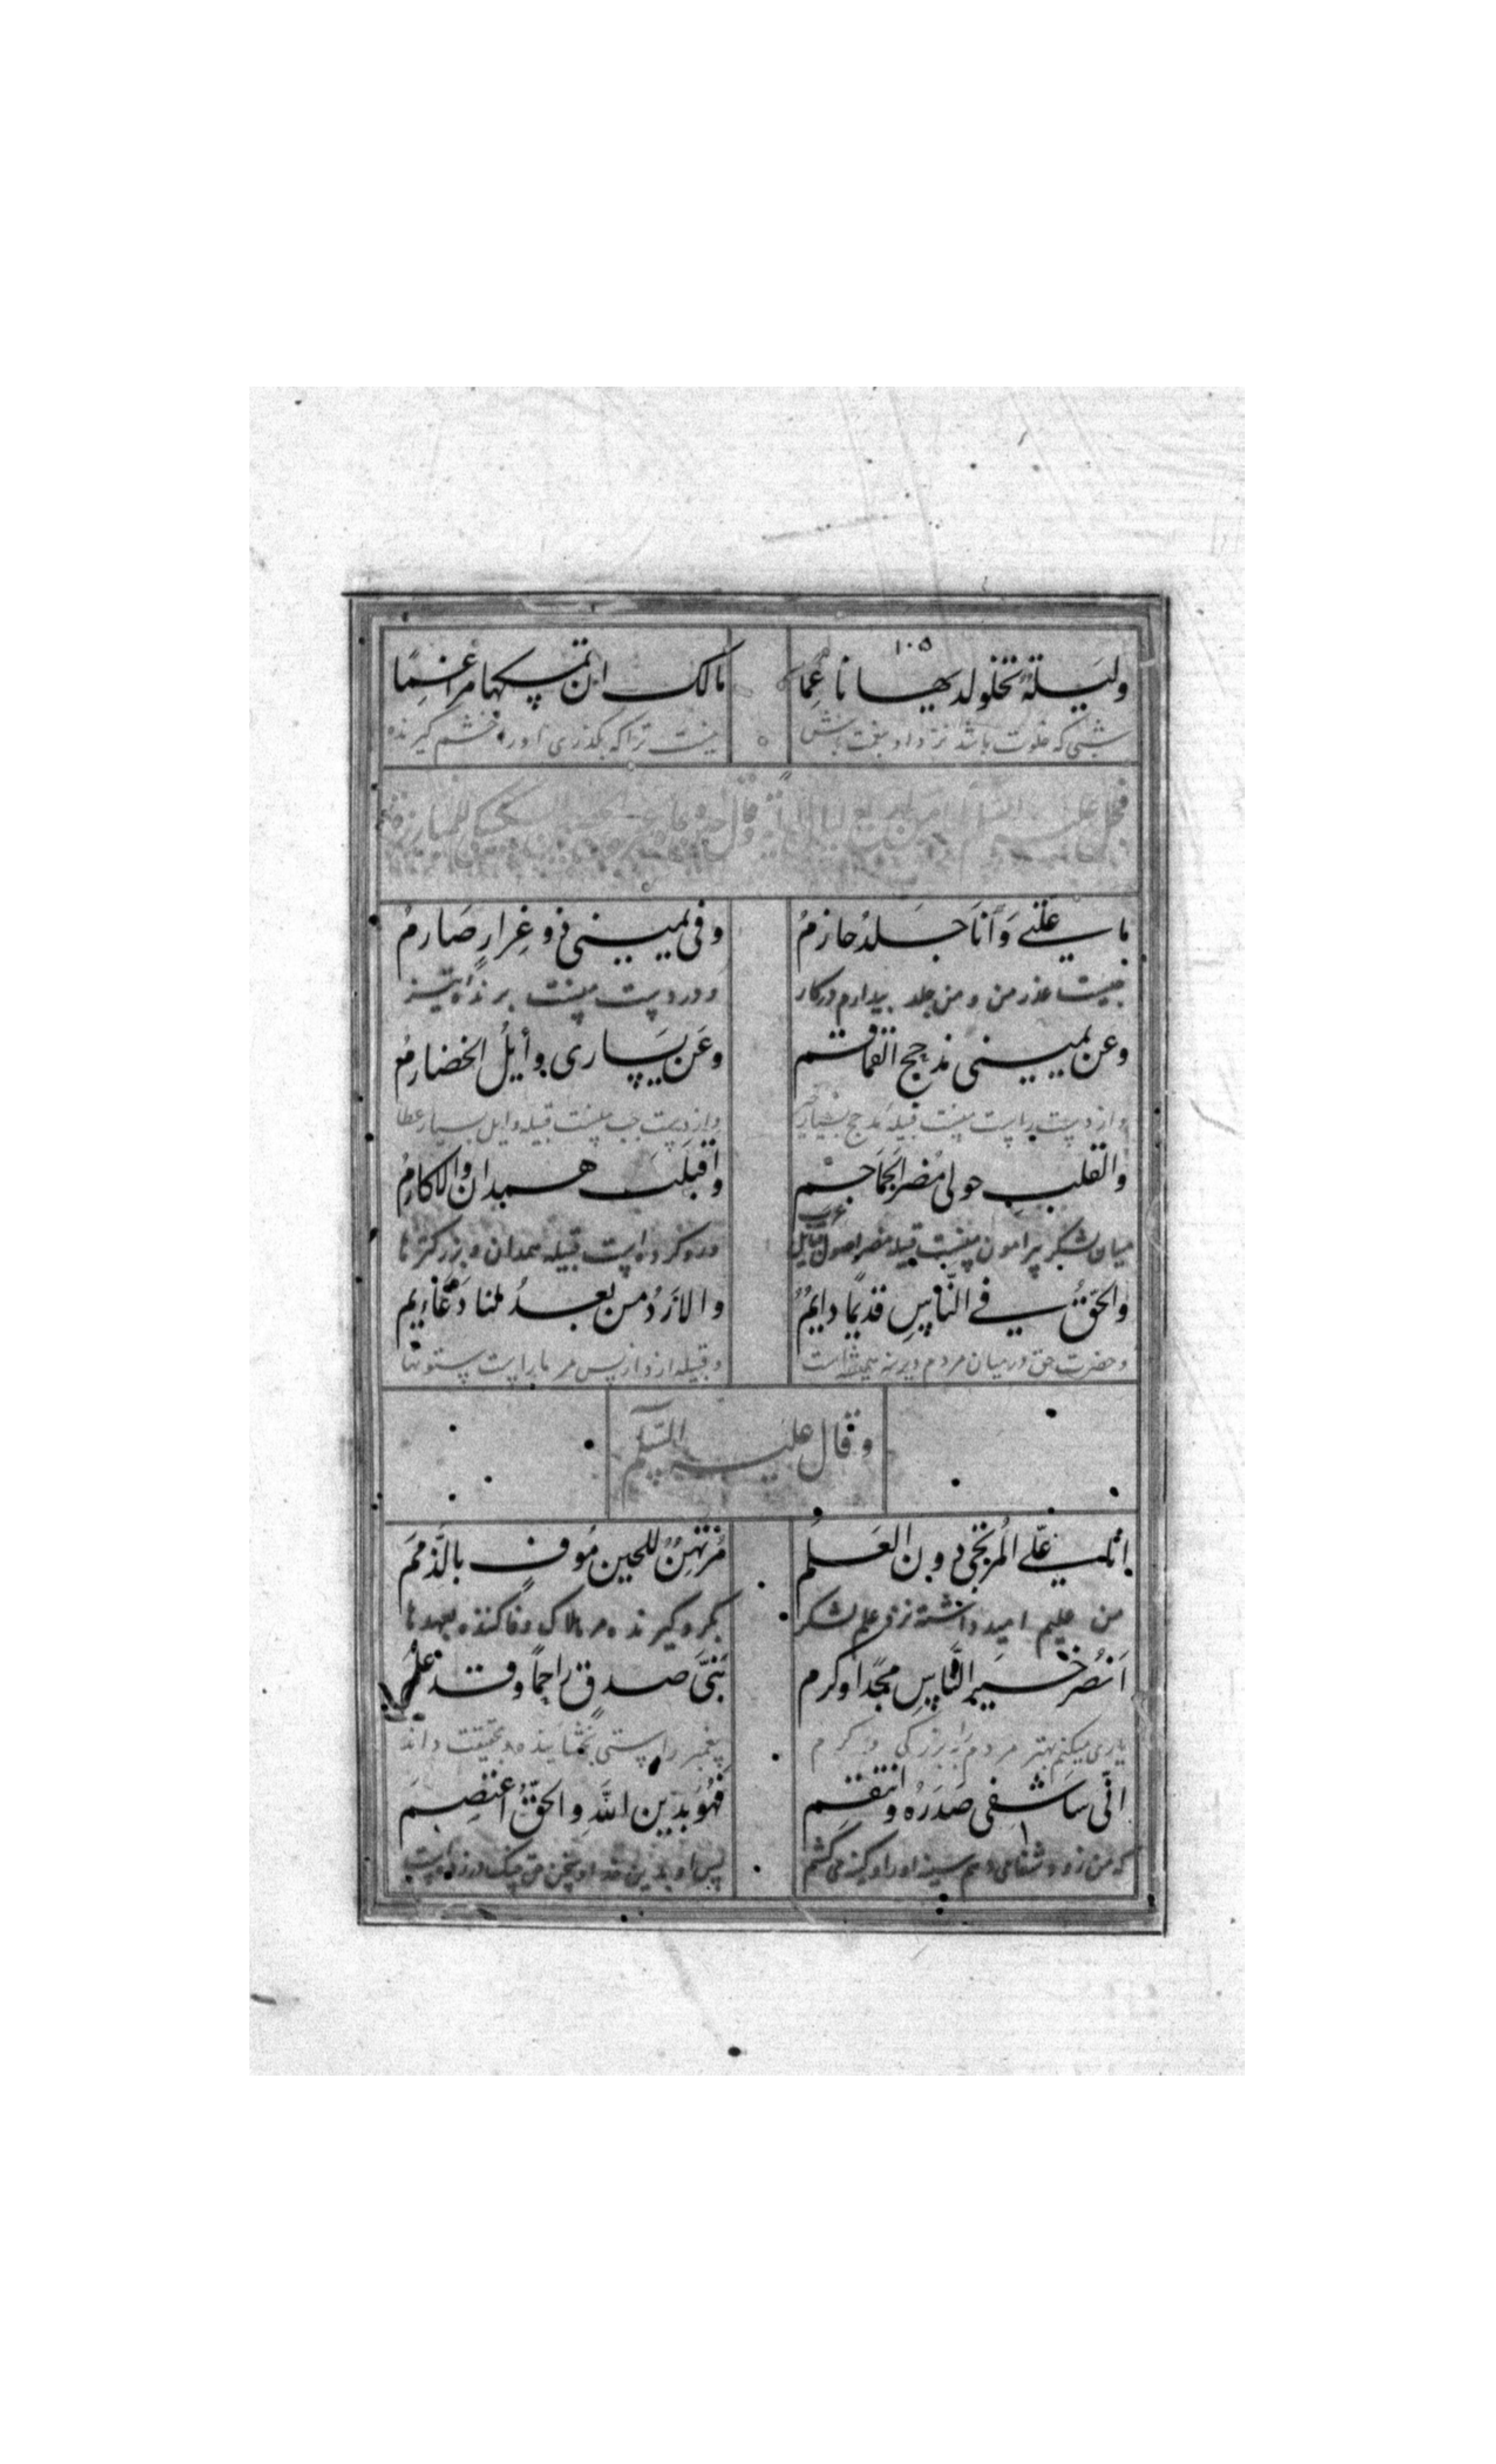 ١٠٥
وليلة تخلو لديها ناعما مالك ان تمسكها مراغما
شبی که خلوت باشد نزد او بنعمت نیست ترا که بگذری او را خشم گیرنده
فحمل عليه السلام
ما علتي وَأنا جلدٌ حازمُ وفي يميني ذو غِرارٍ صَارمُ
چیست عذر من و من جلد بیدارم در کار و در دست منست برنده تیز
وعن يميني مذحج القماقم وعَن يسَاري وأيلُ الخضارمُ
و از دست راست منست قبیله مذحج و از دست چپ منست قبیله وایل بسیار عطا
والقلب حولي مُضر الجمَاجم وأقبلت همدان والاكارمُ
میان لشکر پیرامون منست قبیله مضر اصول قبایل عرب و رو کرده است قبیله همدان و بزرگترها
والحقّ في النّاسِ قديمًا دايمُ والازدُ من بعدُ لنا دعَايم
و حضرت حق در میان مردم دیرینه همیشه است و قبیله ازد از پس مر ما راست ستونها
وقال عليه السّلم
انا علي المرتجى دون العَلم مُرتَهِنٌ للحين مُوف بالذّمَم
من علیم امید داشته نزد علم لشکر بگرو گیرنده مر هلاک وفا کننده بعهدها
اَنصُر خيرَ النّاسِ مجدًا وكرم نبيَّ صدقٍ راحمًا وقد علم
یاری میکنم بهتر مردم را ببزرگی و کرم پیغمبر راستی بخشاینده و بحقیقت داند
انّي سَاشفي صَدرَه وانتقم فهُوَ بدين اللّهِ والحقّ اعتصِم
که من زود شفا می دهم سینه او را و کینه می کشم پس او بدین خدا و حق چنگ در زده است